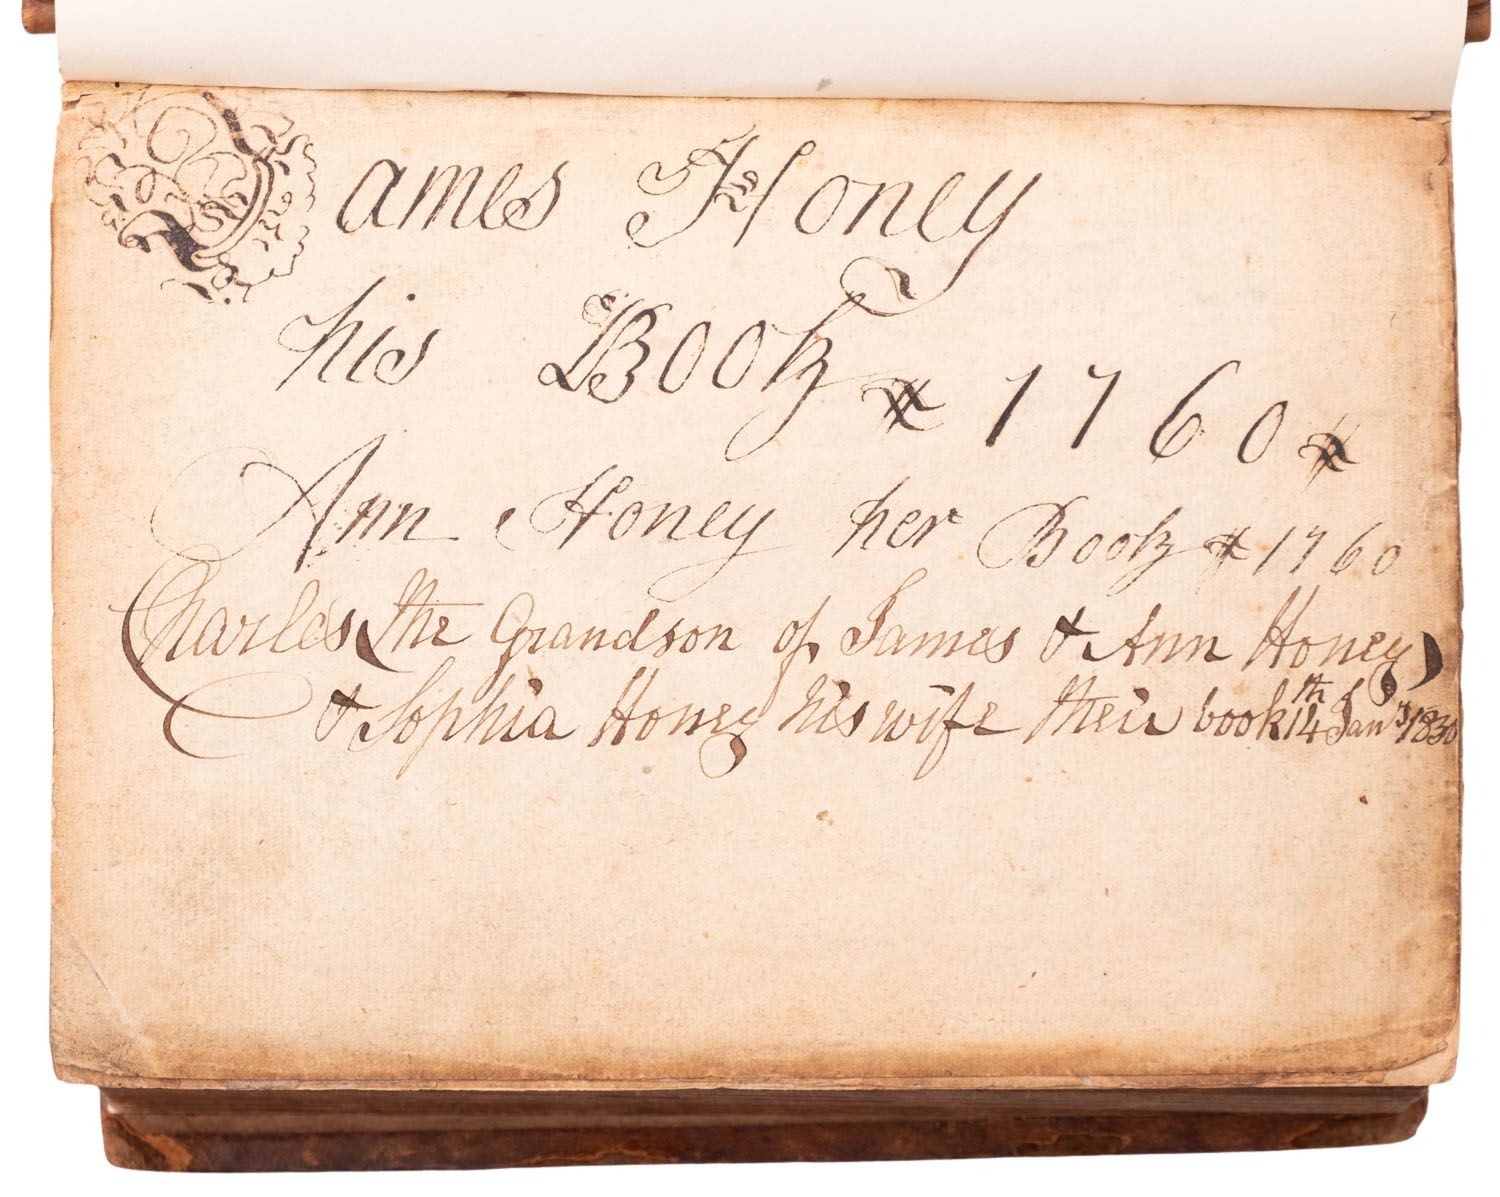 James Honey
his Book 1760
Ann Honey her Book 1760
Charles the Grandson of James & Ann Honey
& Sophia Honey his wife their book 14th Jany 1830